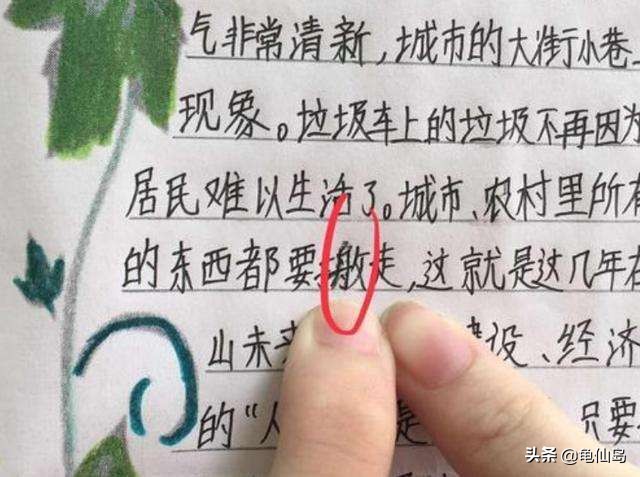 气非常清新,城市的大街小巷
现象。垃圾车上的垃圾不再因为
居民难以生活了。城市、农村里所有
的东西都要走,这就是这几年在
山未来建设、经济
的“人是只要
头条 @龟仙岛